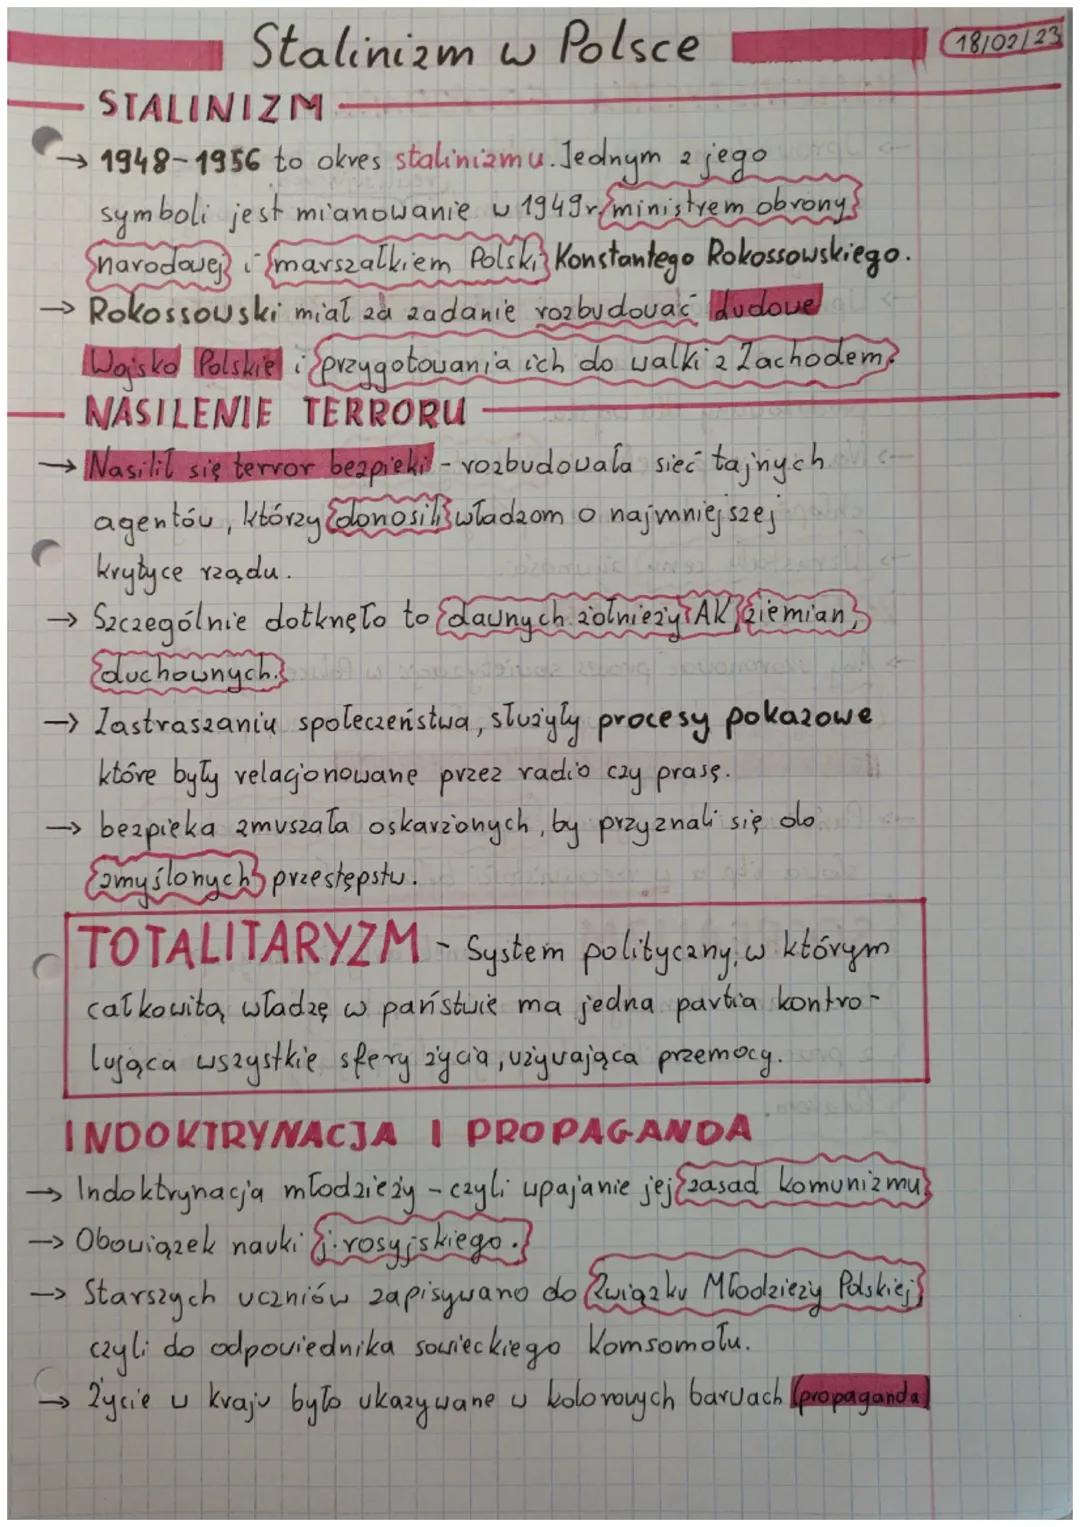 Stalinizm w Polsce
18/02/23
STALINIZM
→ 1948-1956 to okres stalinizmu. Jednym z jego
symboli jest mianowanie w 1949r. ministrem obrony
narodowej i marszałkiem Polski Konstantego Rokossowskiego.
→ Rokossowski miał za zadanie rozbudować Ludowe
Wojsko Polskie i przygotowania ich do walki z Zachodem.
NASILENIE TERRORU
→ Nasilił się terror bezpieki - rozbudowała sieć tajnych
agentów, którzy donosili władzom o najmniejszej
krytyce rządu.
→ Szczególnie dotknęło to dawnych żołnieży AK, ziemian,
duchownych.
→ Zastraszaniu społeczeństwa, służyły procesy pokazowe
które były relacjonowane przez radio czy prasę.
→ bezpieka zmuszała oskarżonych, by przyznali się do
zmyślonych przestępstw.
TOTALITARYZM - System polityczny, w którym
całkowitą władzę w państwie ma jedna partia kontro-
lująca wszystkie sfery życia, używająca przemocy.
INDOKTRYNACJA I PROPAGANDA
→ Indoktrynacja młodzieży - czyli wpajanie jej zasad komunizmu
→ Obowiązek nauki j. rosyjskiego.
→ Starszych uczniów zapisywano do Związku Młodzieży Polskiej
czyli do odpowiednika sowieckiego Komsomołu.
→ Życie w kraju było ukazywane w kolorowych barwach (propaganda)